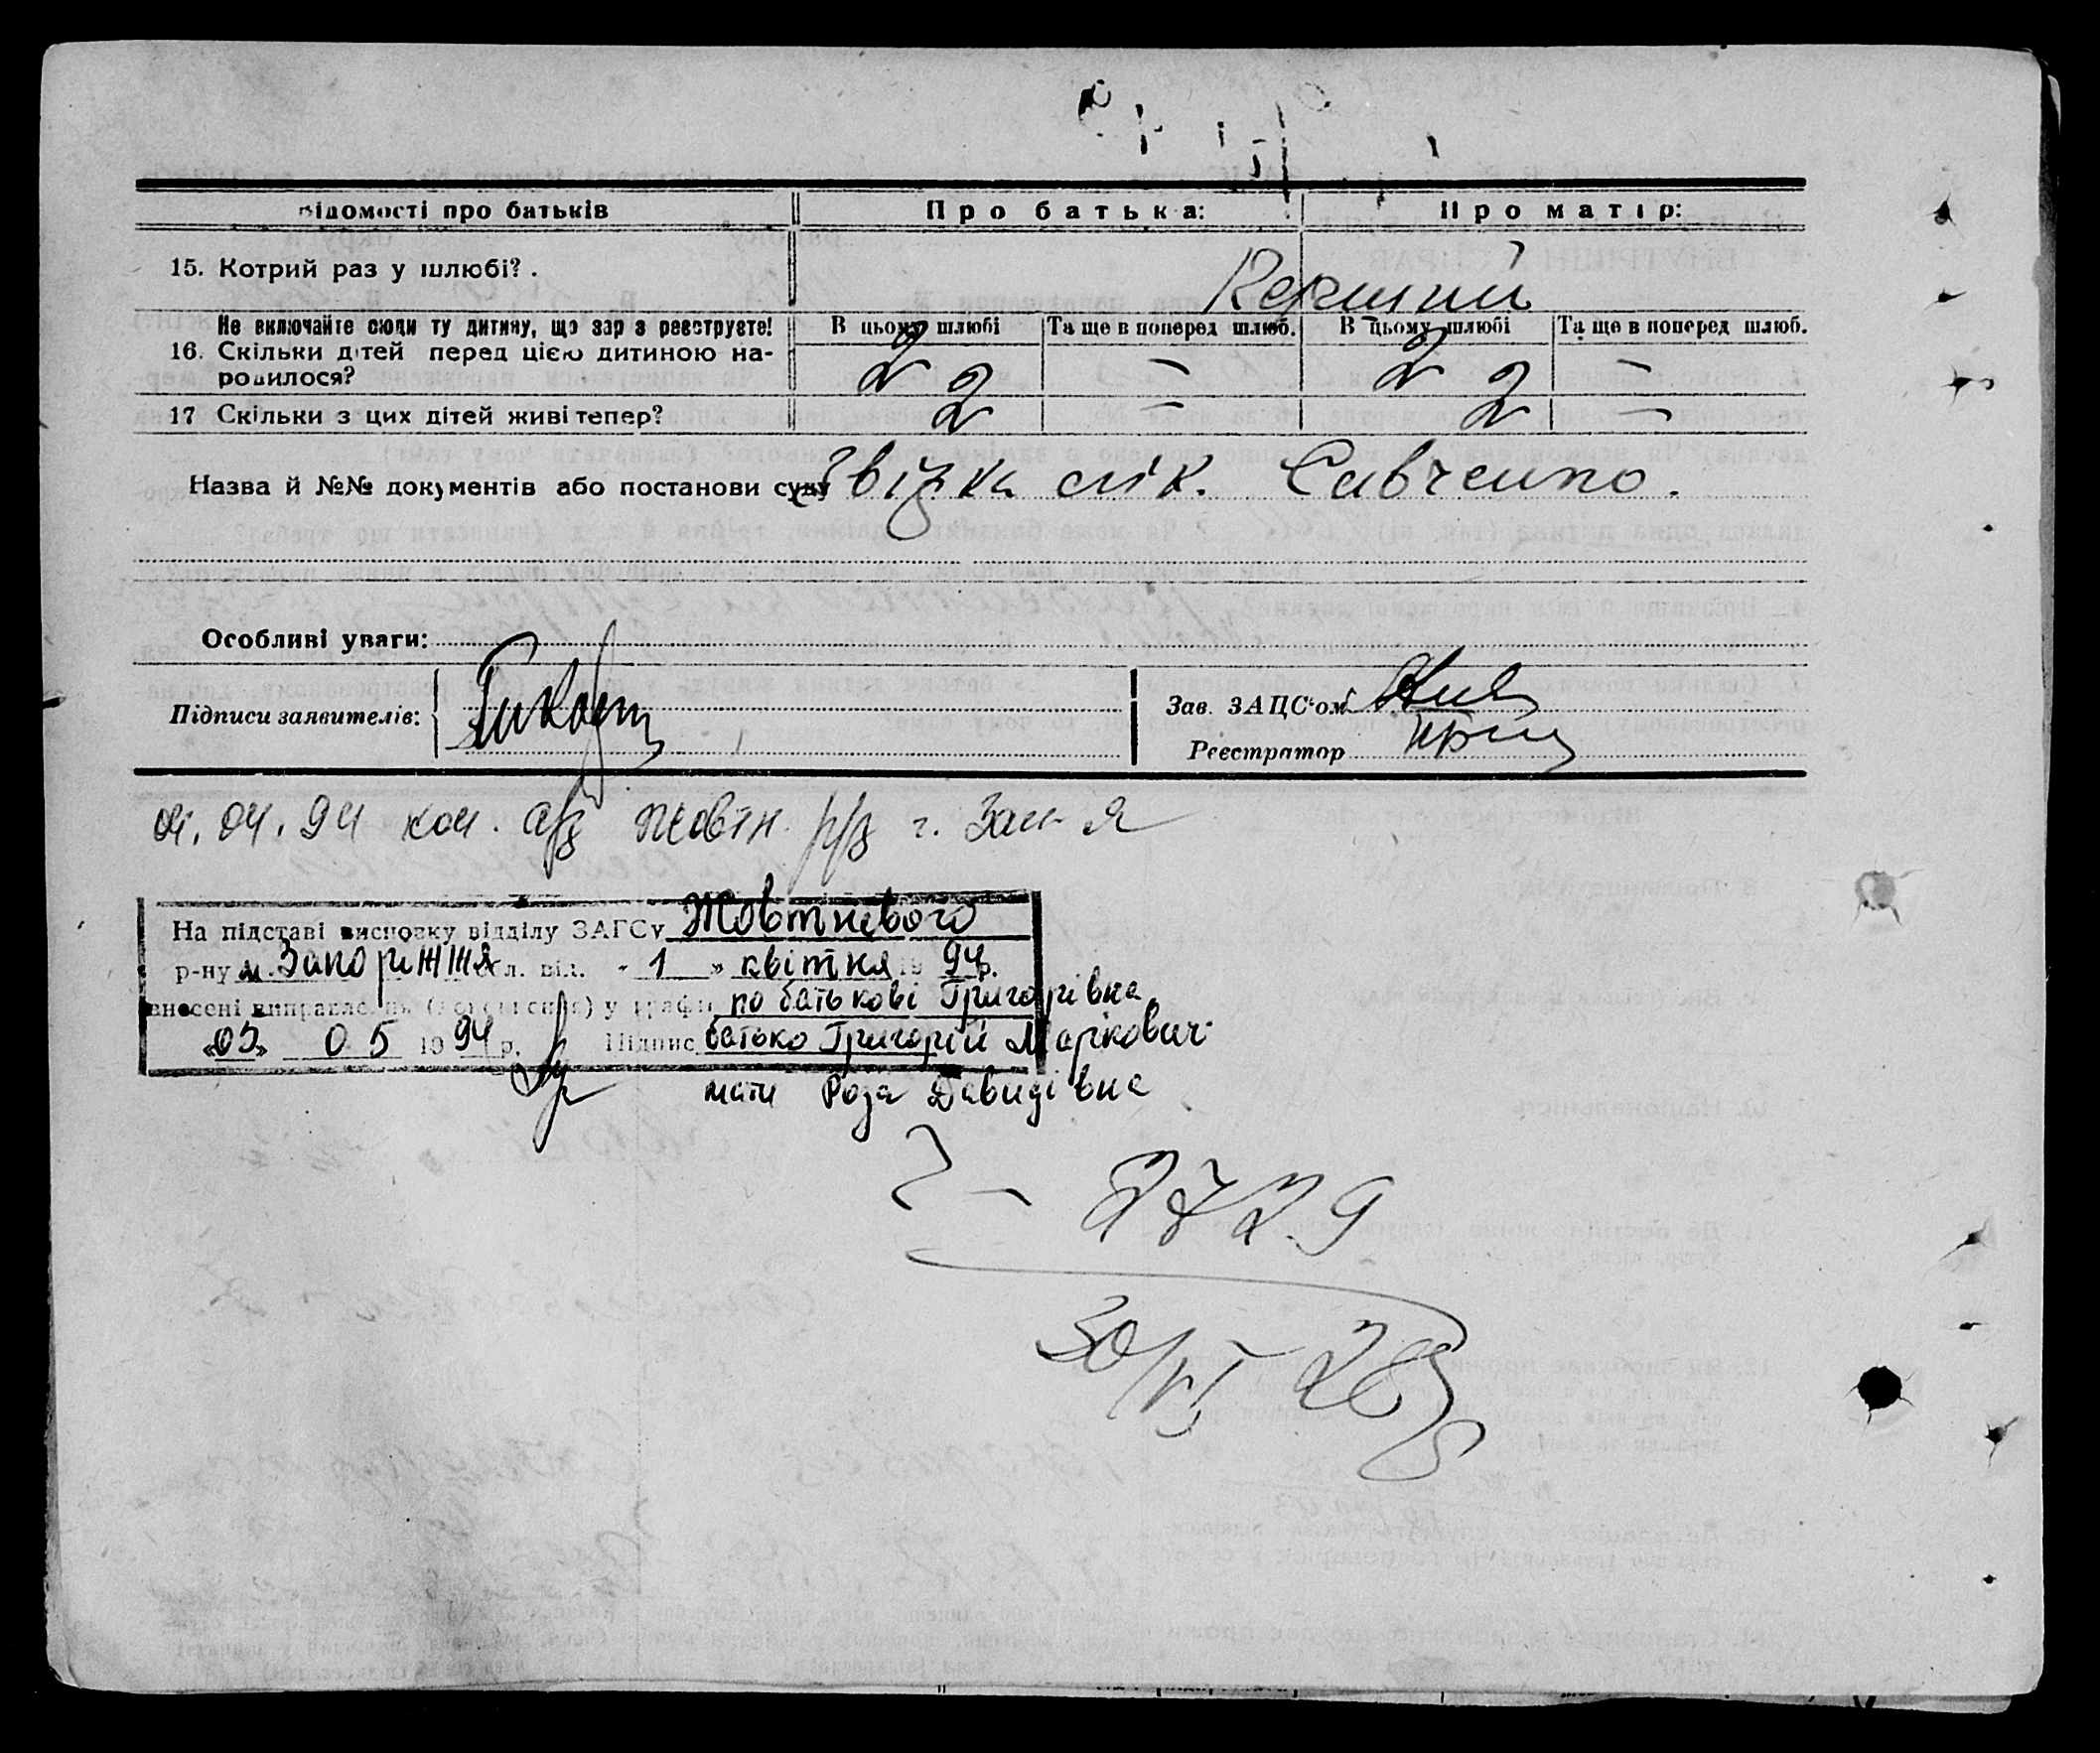 Відомості про батьків Про батька: Про матір:
15. Котрий раз у шлюбі?. Перший
Не включайте сюди ту дитину, що зараз реєструєте! В цьому шлюбі Та ще в поперед шлюб. В цьому шлюбі Та ще в поперед шлюб.
16. Скільки дітей перед цією дитиною на-
родилося? 2 2 — 2 2 —
17 Скільки з цих дітей живі тепер? 2 — 2 —
Назва й №№ документів або постанови суду Звізка лік. Савченко.
Особливі уваги:
Підписи заявителів:
Зав. ЗАЦС'ом
Реєстратор
04.94 Жовтн. р/в г. Зап-я
На підставі висновку відділу ЗАГСу Жовтневого
р-ну м. Запоріжжя обл. від. «1» квітня 19 94 р.
внесені виправлення (доповнення) у графі по батькові Григорівна,
«03» 05 1994 р. Підпис батько Григорій Марікович
мати Роза Давидівна
2729
30/VI 28